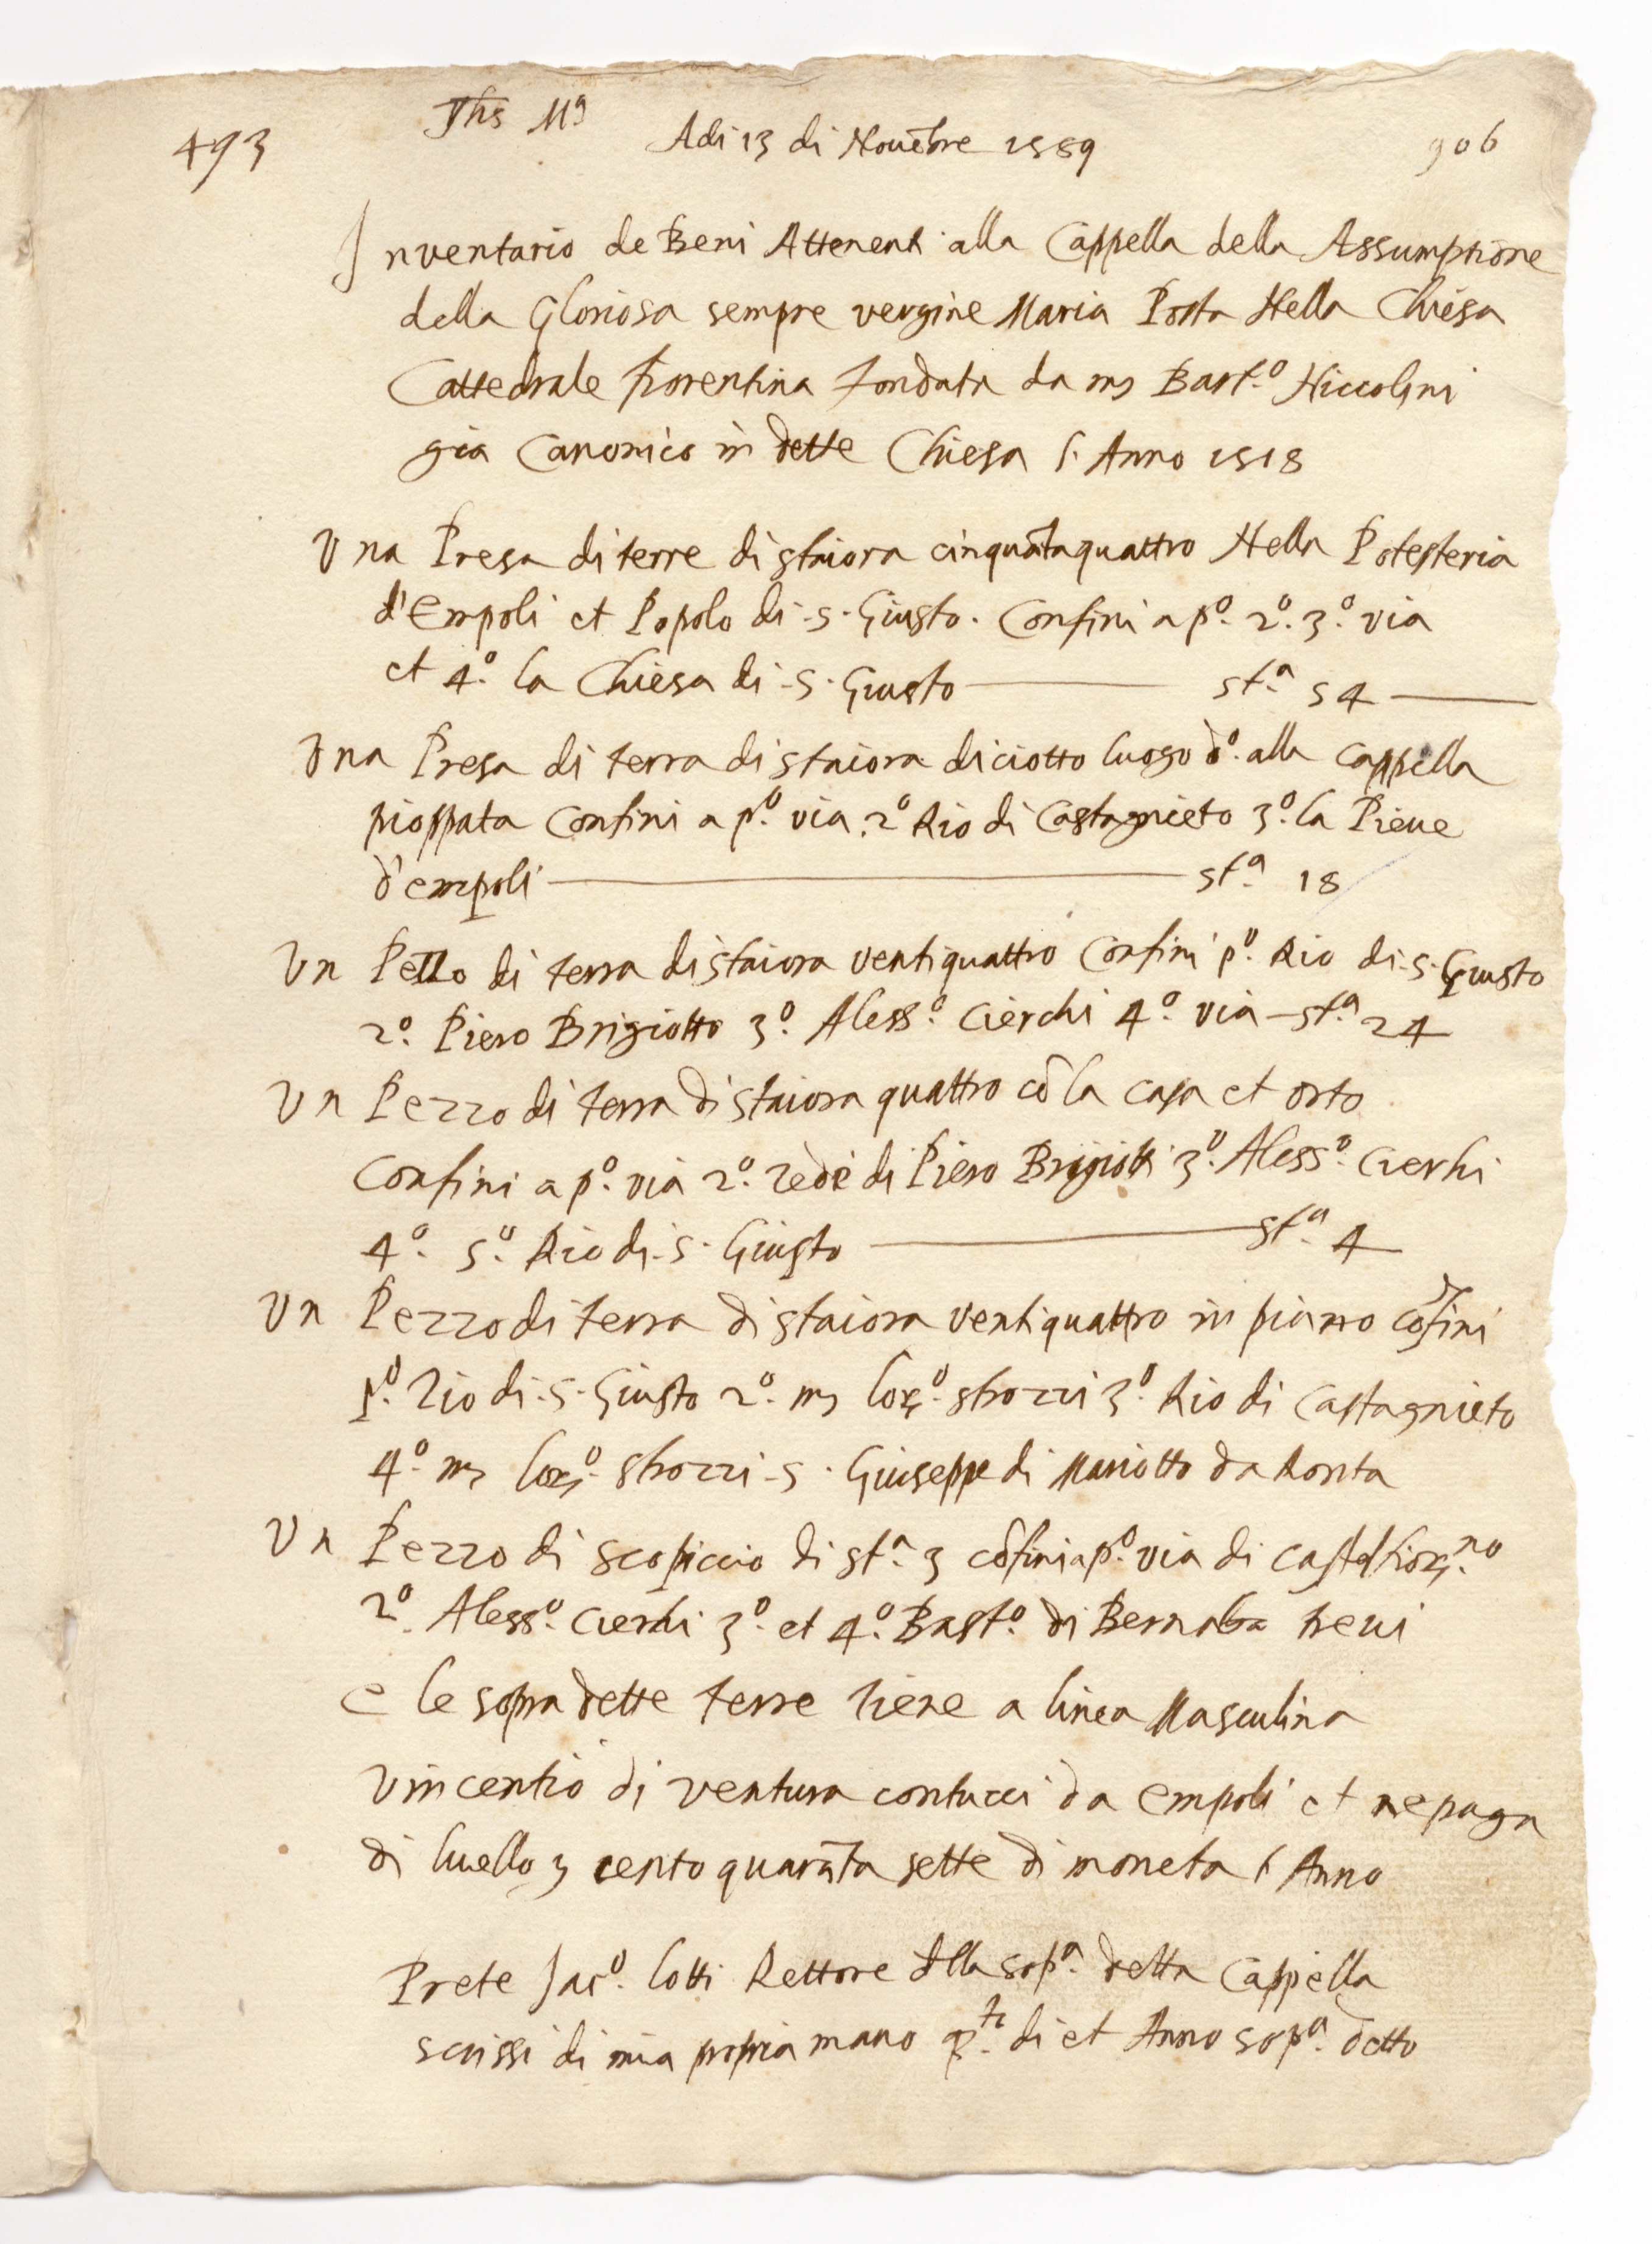 Yhs Mª
493 Adi 13 di Nouēbre 1589 906
Inventario de Beni Attenenti alla Cappella della Assumptione
della Gloriosa sempre vergine Maria Posta Nella Chiesa
Cattedrale fiorentina fondata da ms Bart.º Niccolini
gia Canonico in dette Chiesa l'Anno 1518
Una Presa di terre di staiora cinquātaquattro Nella Potesteria
d'Empoli et Popolo di S. Giusto. Confini a p.º 2.º 3.º via
et 4.º la Chiesa di S. Giusto — st.ª 54 —
Una Presa di terra di staiora diciotto luogo d.º alla Cappella
pioppata Confini a p.º via 2º Rio di Castagnieto 3.º la Pieue
d'empoli — st.ª 18
Un Pezzo di terra di staiora ventiquattro Confini p.º Rio di S. Giusto
2.º Piero Brigiotto 3.º Aless.º Cierchi 4.º via — st.ª 24
Un Pezzo di terra di staiora quattro cō la casa et orto
Confini a p.º via 2.º rede di Piero Brigiotti 3.º Aless.º Cierhi
4.º 5.º Rio di S. Giusto — st.ª 4
Un Pezzo di terra di staiora ventiquattro in piano cōfini
p.º rio di S. Giusto 2.º ms Lor.º strozzi 3.º Rio di Castagnieto
4.º ms Lor.º strozzi 5. Giuseppe di Mariotto da Ronta
Un Pezzo di scopiccio di st.ª 3 cōfini a p.º via di castelfior.no
2.º Aless.º Cierchi 3.º et 4.º Bast.º di Bernaba
e le sopra dette terre tiene a linea Masculina
Vincentio di ventura contucci da empoli et ne paga
di liuello cento quarāta sette di moneta l'Anno
Prete Jac.º Lotti Rettore della sop.ª detta Cappella
scrissi di mia propria mano di et Anno sop.ª detto